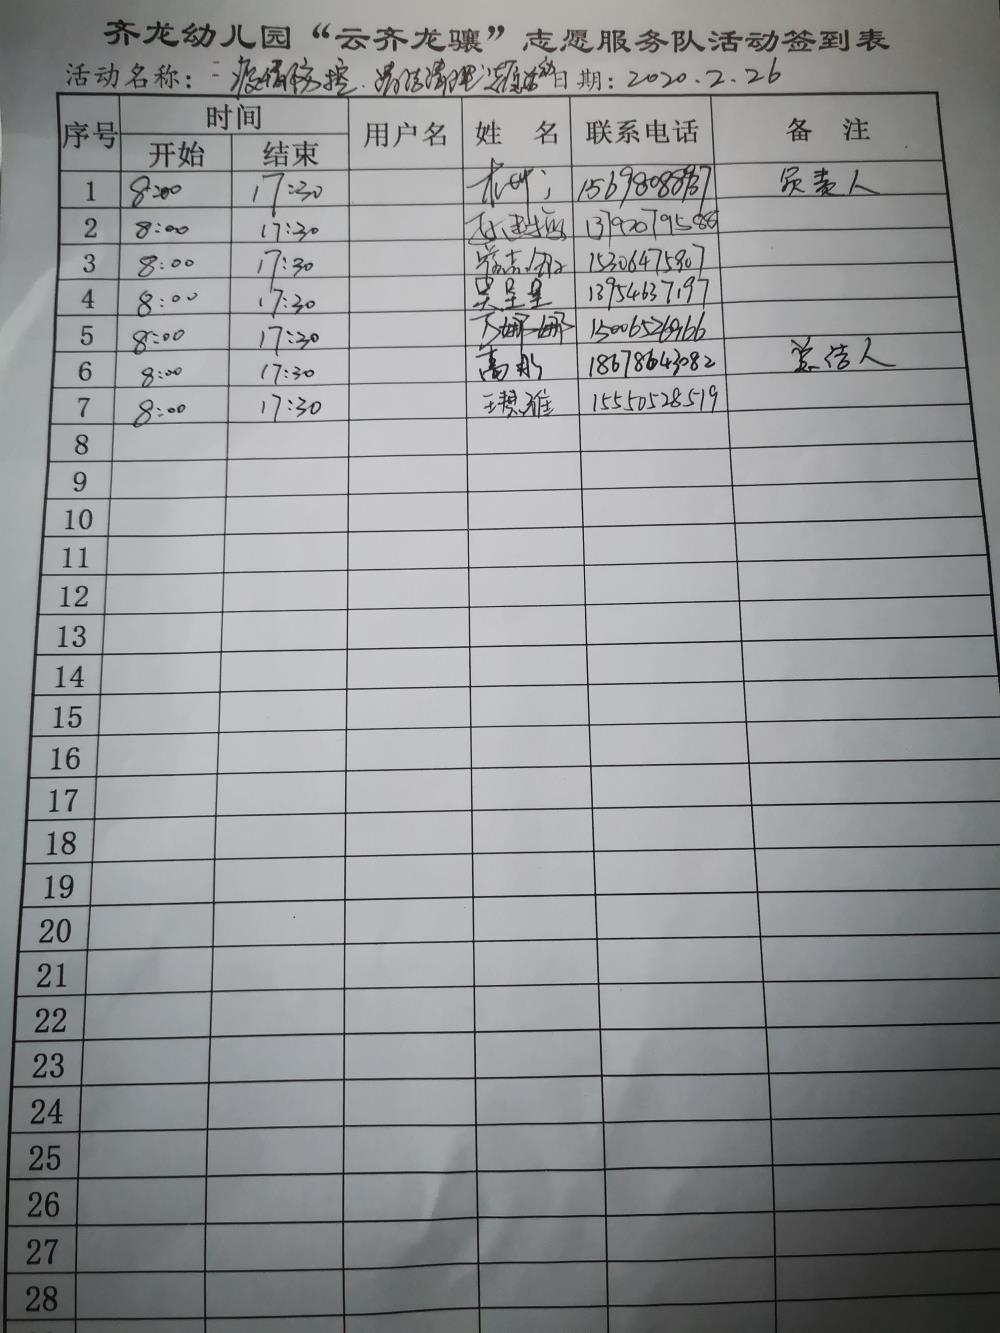 齐龙幼儿园“云齐龙骧”志愿服务队活动签到表
活动名称：疫情防控.清洁清理 日期：2020.2.26
序号 时间 用户名 姓 名 联系电话 备 注
开始 结束
1 8:00 17:30 负责人
2 8:00 17:30 13792079588
3 8:00 17:30 15306475807
4 8:00 17:30 吴星星 13954637197
5 8:00 17:30 娜娜
6 8:00 17:30 高 18678643082 总结人
7 8:00 17:30 王 雅 15550528519
8
9
10
11
12
13
14
15
16
17
18
19
20
21
22
23
24
25
26
27
28